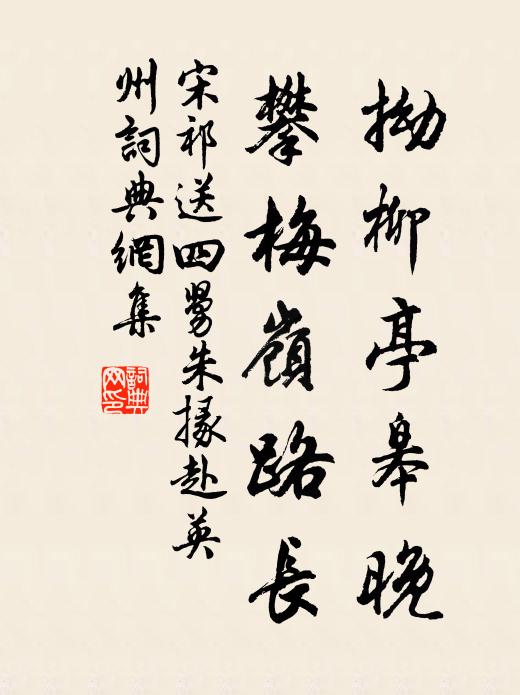 拗柳亭皋晚
攀梅嶺路長
宋祁送四舅朱掾赴英
州詞典網集
詞典网印